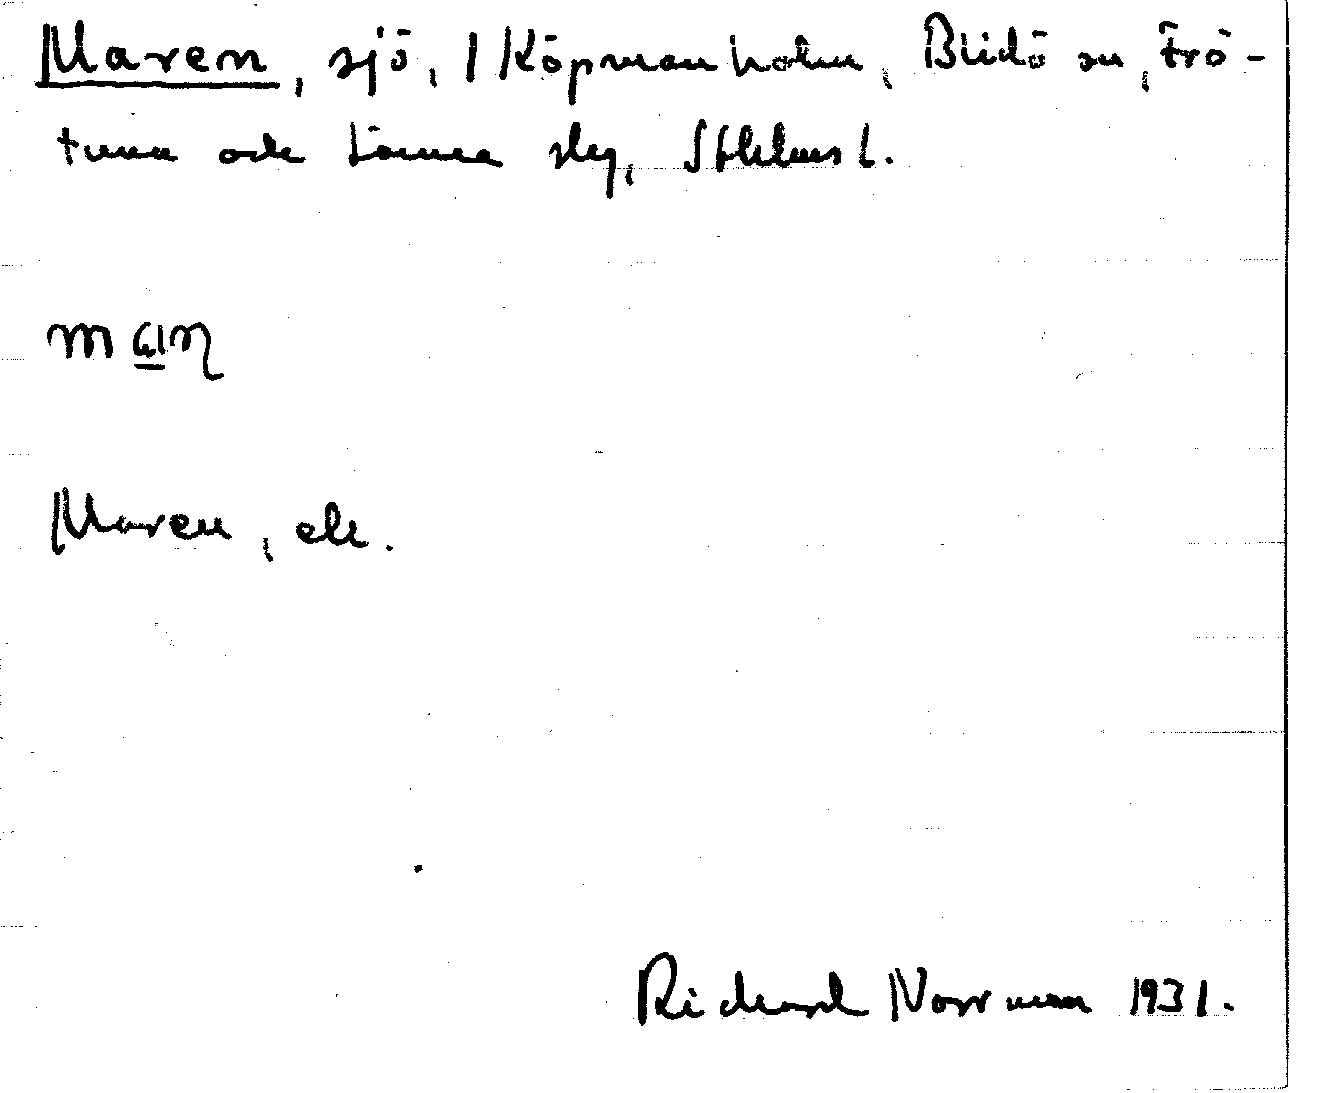 Maren, sjö, 1 Köpmanholm, Blidö sn, Frö-
tuna och Länna slg, Sthlms l.
Maren, ek.
Richard Norrman 1931.